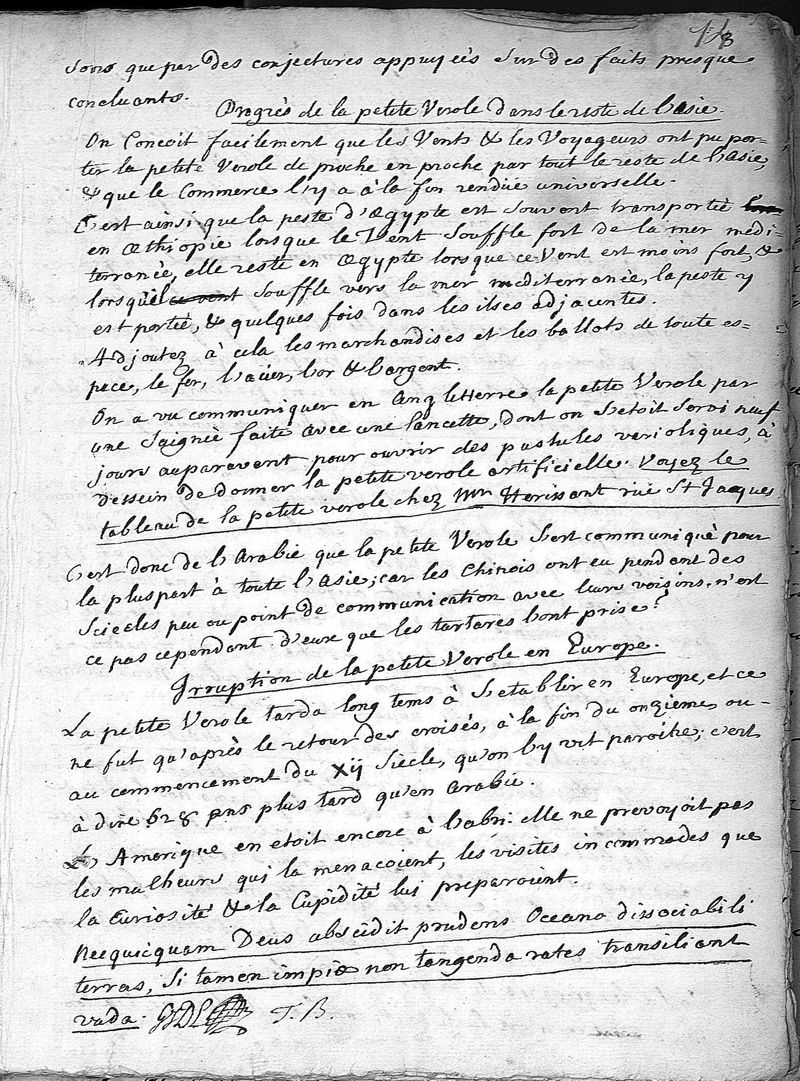 sons que par des conjectures appuyées sur des faits presque
concluants.
Progrès de la petite Verole dans le reste de l'asie
On Concoit facilement que les Vents & les Voyageurs ont pu por=
ter la petite Verole de proche en proche par tout le reste de l'Asie,
& que le Commerce l'y a à la fin rendüe universelle.
C'est ainsi que la peste d'Ægypte est souvent transportée
en Æthiopie lorsque le Vent souffle fort de la mer medi-
terranée, elle reste en Ægypte lorsque ce Vent est moins fort, &
lorsqu'il ce vent souffle vers la mer mediterranée, la peste y
est portée, & quelques fois dans les isles adjacentes.
Adjoutez à cela les marchandises et les ballots de toute es-
pece, le fer, l'acier, l'or & l'argent.
On a vu communiquer en Angletterre la petite Verole par
une Saignée faite avec une lancette, dont on s'etoit servi neuf
jours auparavent pour ouvrir des pustules varioliques, à
dessein de donner la petite verole artificielle. Voyez le
tableau de la petite verole chez Mr Herissant rüe St Jacques
C'est donc de l'Arabie que la petite Verole s'est communiquè pour
la pluspart à toute l'Asie; car les Chinois ont eu pendant des
Sciecles peu ou point de communication avec leurs voisins. n'est
ce pas cependant d'eux que les tartares l'ont prise?
Irruption de la petite Verole en Europe.
La petite Verole tarda long tems à s'etablir en Europe, et ce
ne fut qu'après le retour des croisés, à la fin du onzième ou-
au commencement du Xij Siècle, qu'on l'y vit paroitre; c'est
à dire 528 ans plus tard qu'en Arabie.
L'Amerique en etoit encore à l'abri: elle ne prevoyoit pas
les malheurs qui la menacoient, les visites incommodes que
la Curiosité & la Cupidité lui preparoient.
Neequicquam Deus abscidit prudens Oceano dissociabili
terras, Si tamen impiæ non tangenda rates transiliant
vada. T. B.